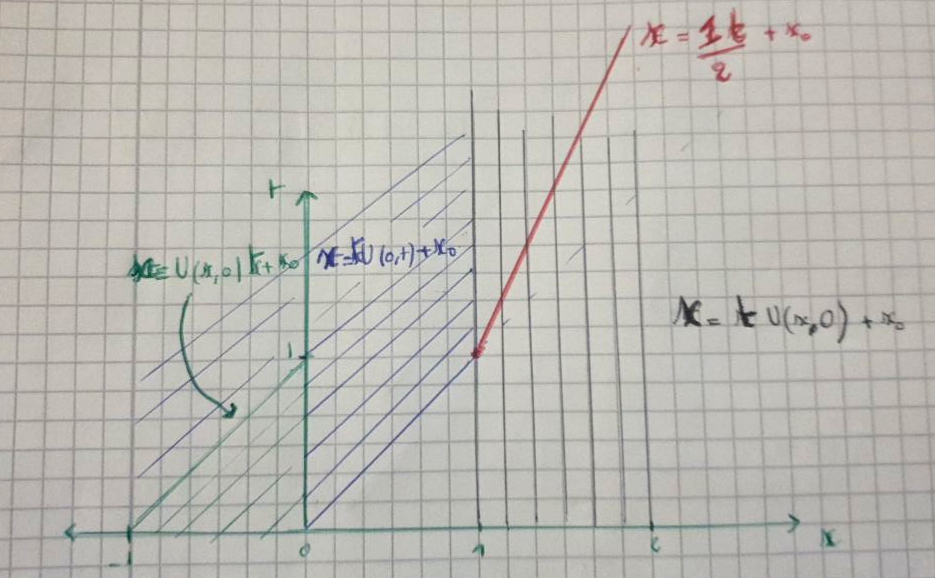 x = 1t/2 + x₀
t
x = U(x,0) t + x₀
x = tU(0,t) + x₀
1
x = t U(x,0) + x₀
-1
0
1
2
x